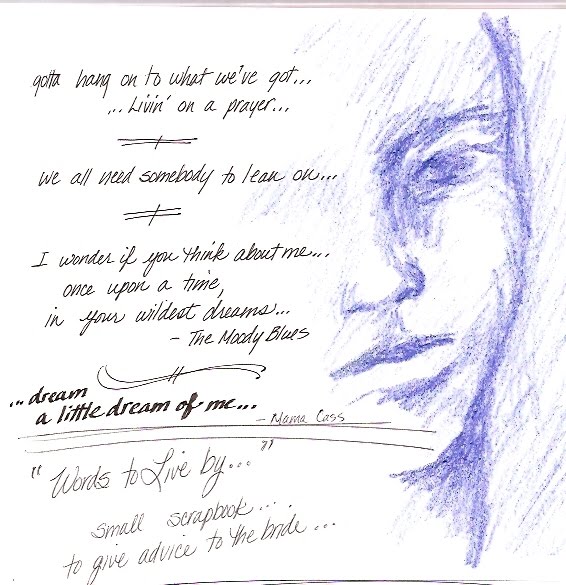 gotta hang on to what we've got...
... Livin' on a prayer...
we all need somebody to lean on...
I wonder if you think about me...
once upon a time,
in your wildest dreams...
- The Moody Blues
... dream
a little dream of me...
- Mama Cass
"Words to Live by..."
small scrapbook...
to give advice to the bride...